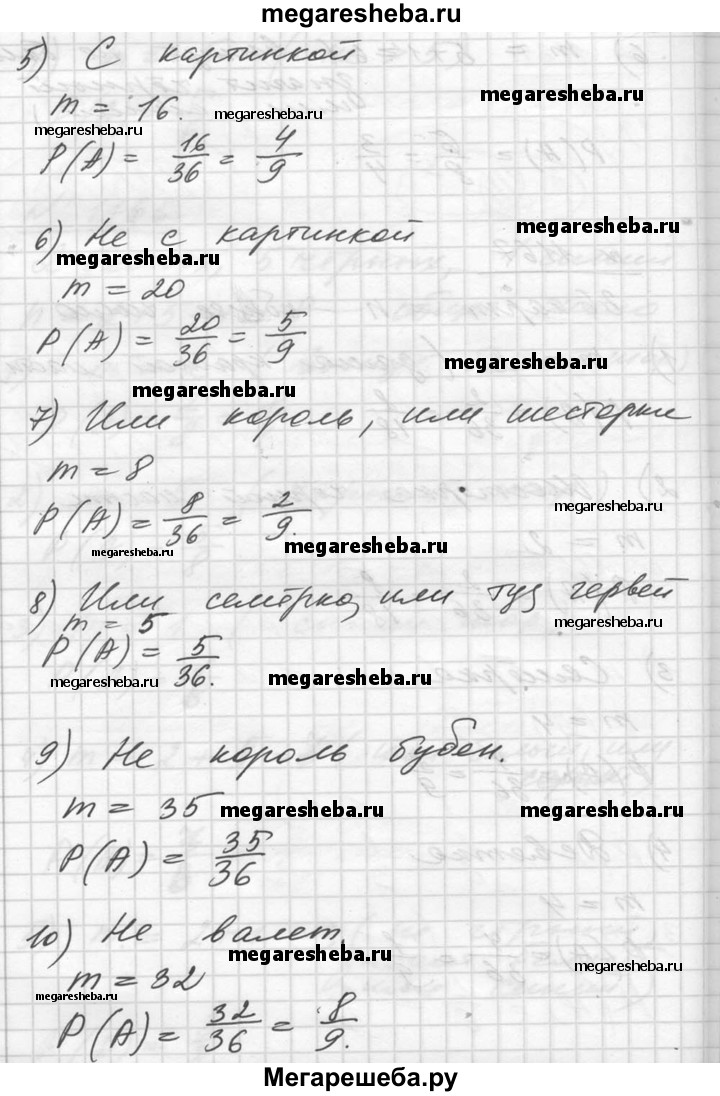 megaresheba.ru
5) С картинкой
megaresheba.ru
m = 16.
megaresheba.ru
megaresheba.ru
P(A) = 16/36 = 4/9
6) Не с картинкой
megaresheba.ru
megaresheba.ru
m = 20
P(A) = 20/36 = 5/9
megaresheba.ru
megaresheba.ru
7) Или король, или шестерки
m = 8
P(A) = 8/36 = 2/9.
megaresheba.ru
megaresheba.ru
megaresheba.ru
8) Или семёрка, или туз червей
m = 5
megaresheba.ru
P(A) = 5/36.
megaresheba.ru
megaresheba.ru
9) Не король бубен.
m = 35
megaresheba.ru
megaresheba.ru
P(A) = 35/36
10) Не валет.
megaresheba.ru
megaresheba.ru
m = 32
megaresheba.ru
P(A) = 32/36 = 8/9.
Мегарешеба.ру